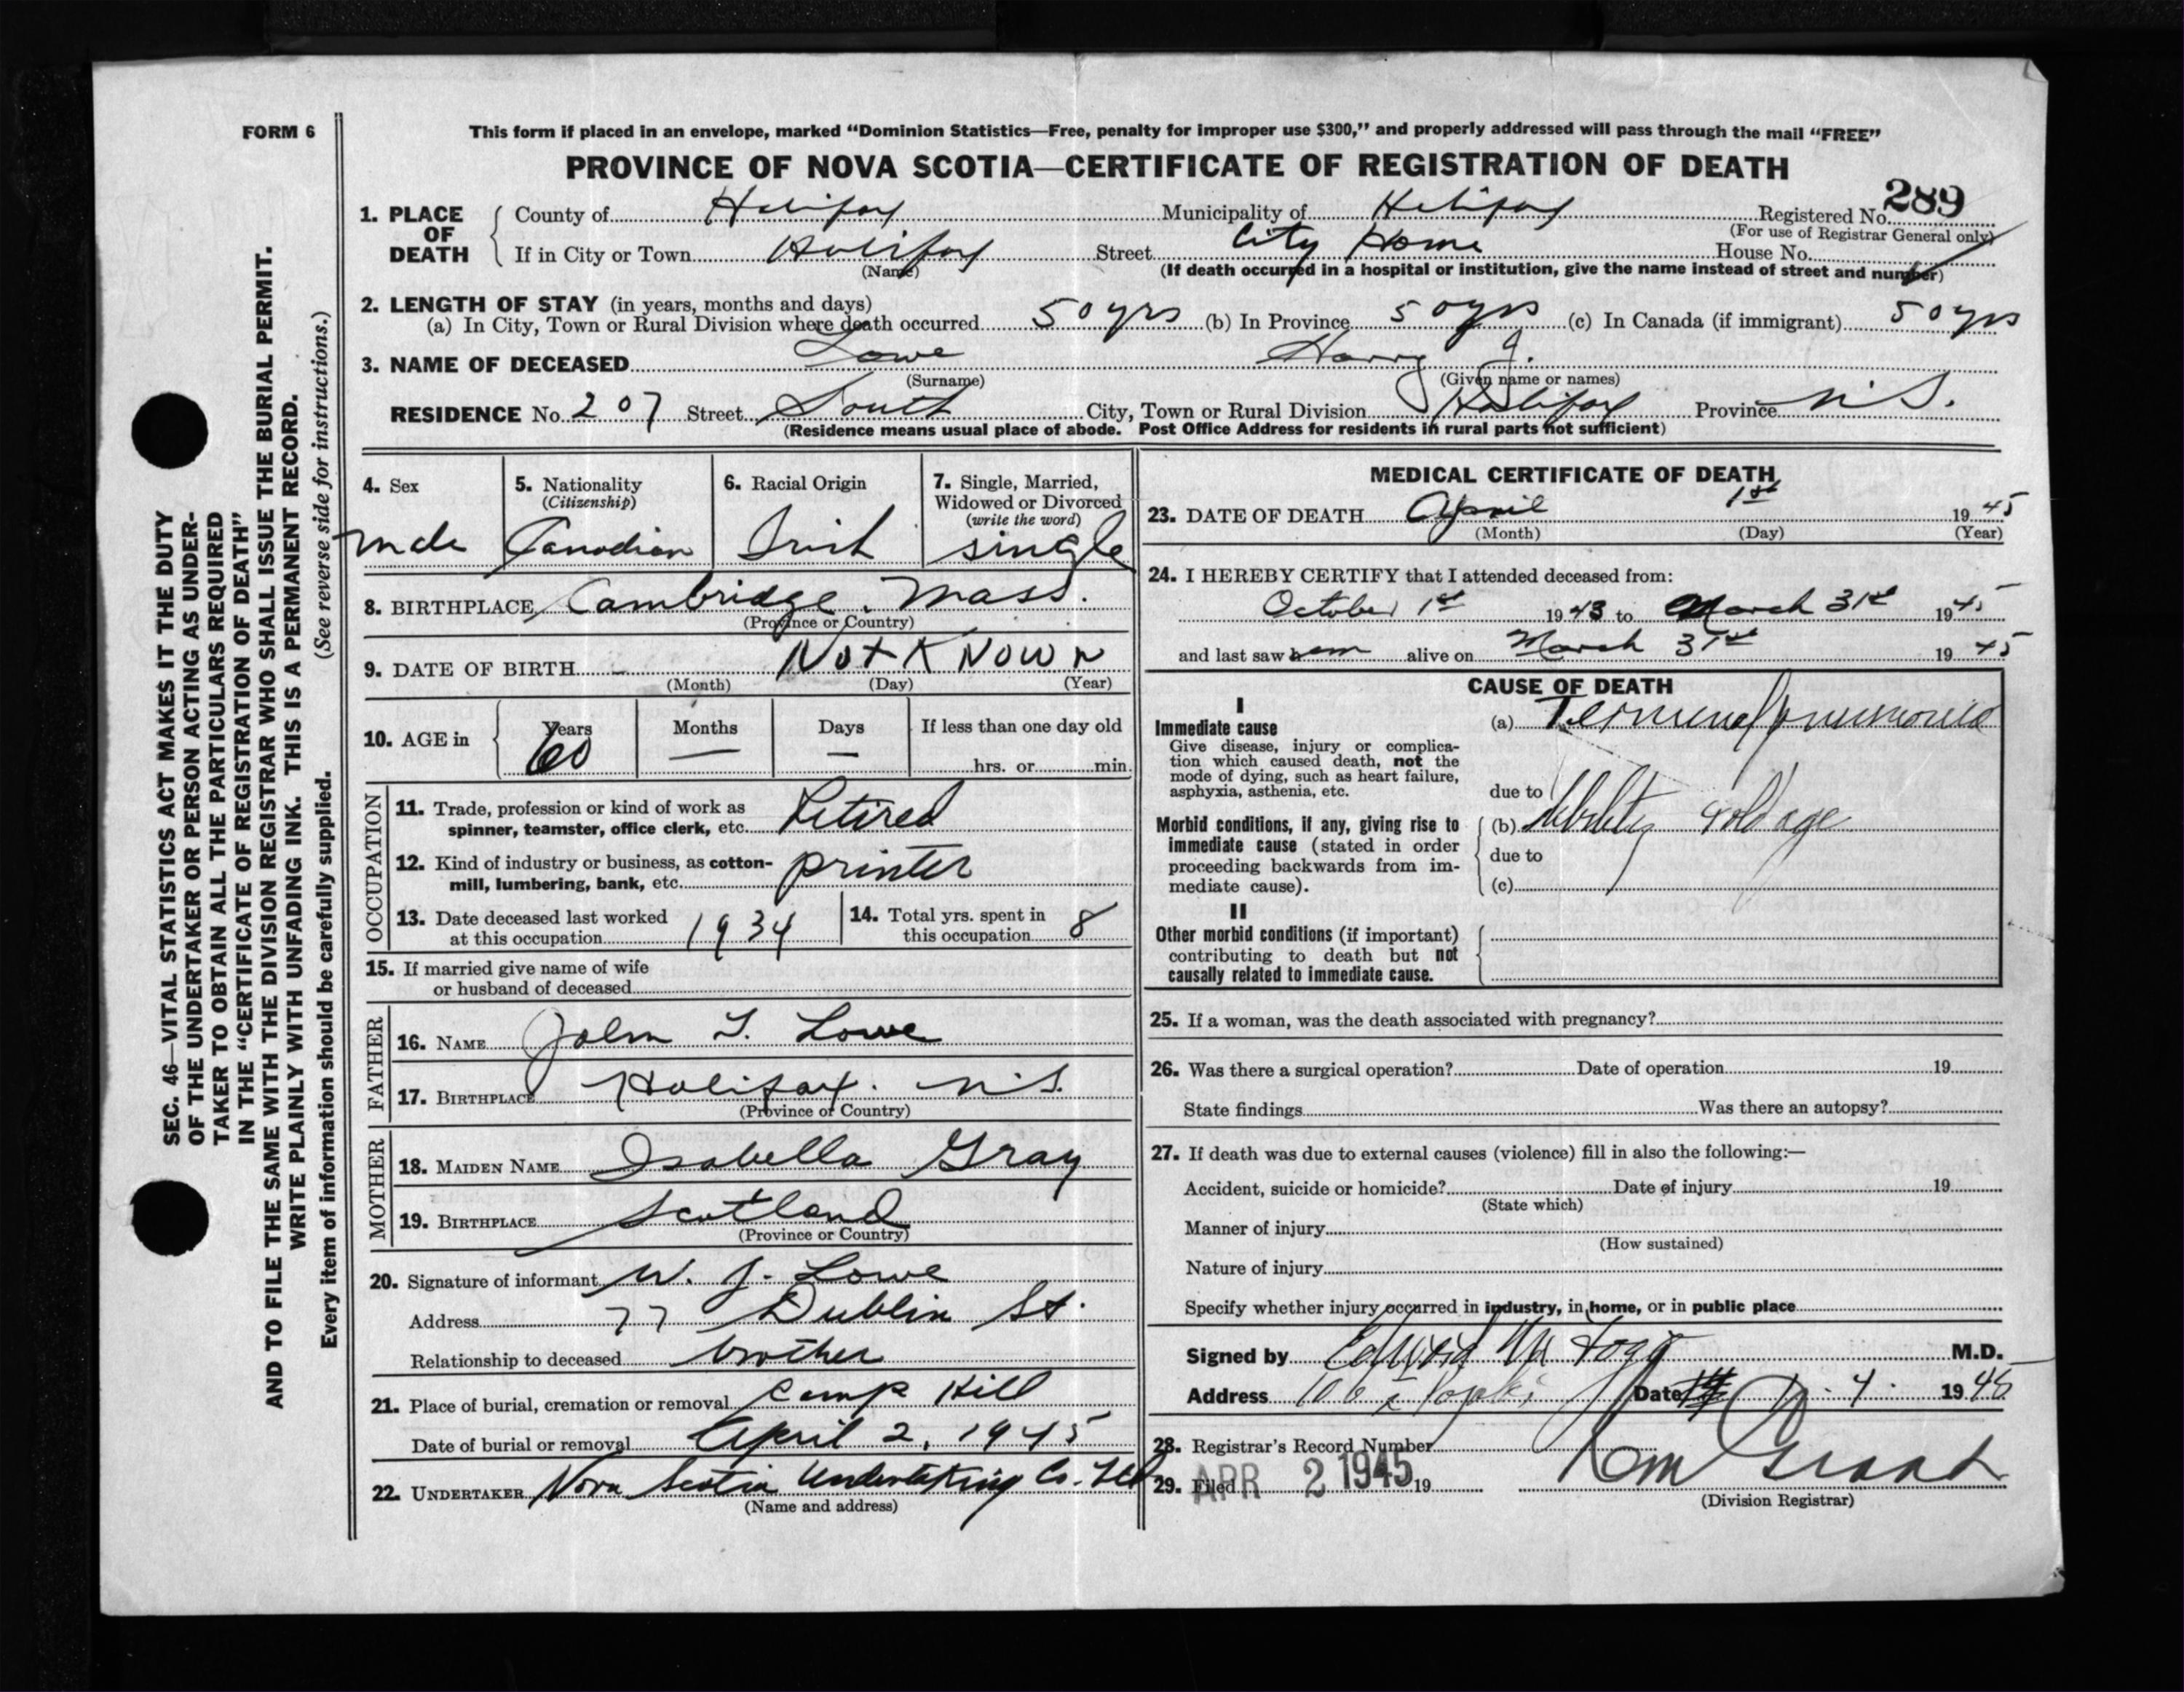 FORM 6
This form if placed in an envelope, marked “Dominion Statistics—Free, penalty for improper use $300,” and properly addressed will pass through the mail “FREE”
PROVINCE OF NOVA SCOTIA—CERTIFICATE OF REGISTRATION OF DEATH
SEC. 46—VITAL STATISTICS ACT MAKES IT THE DUTY
OF THE UNDERTAKER OR PERSON ACTING AS UNDER-
TAKER TO OBTAIN ALL THE PARTICULARS REQUIRED
IN THE “CERTIFICATE OF REGISTRATION OF DEATH”
AND TO FILE THE SAME WITH THE DIVISION REGISTRAR WHO SHALL ISSUE THE BURIAL PERMIT.
WRITE PLAINLY WITH UNFADING INK. THIS IS A PERMANENT RECORD.
Every item of information should be carefully supplied. (See reverse side for instructions.)
1. PLACE OF DEATH County of Halifax Municipality of Halifax Registered No. 289
(For use of Registrar General only)
If in City or Town Halifax Street City Home House No.
(Name) (If death occurred in a hospital or institution, give the name instead of street and number)
2. LENGTH OF STAY (in years, months and days)
(a) In City, Town or Rural Division where death occurred 50 yrs (b) In Province 50 yrs (c) In Canada (if immigrant) 50 yrs
3. NAME OF DECEASED Lowe Harry J.
(Surname) (Given name or names)
RESIDENCE No. 207 Street South City, Town or Rural Division Halifax Province N.S.
(Residence means usual place of abode. Post Office Address for residents in rural parts not sufficient)
4. Sex male
5. Nationality (Citizenship) Canadian
6. Racial Origin Irish
7. Single, Married, Widowed or Divorced (write the word) single
8. BIRTHPLACE Cambridge. Mass.
(Province or Country)
9. DATE OF BIRTH Not Known
(Month) (Day) (Year)
10. AGE in Years 60 Months — Days — If less than one day old
hrs. or min.
OCCUPATION
11. Trade, profession or kind of work as
spinner, teamster, office clerk, etc. Retired
12. Kind of industry or business, as cotton-
mill, lumbering, bank, etc. printer
13. Date deceased last worked
at this occupation 1934
14. Total yrs. spent in
this occupation 8
15. If married give name of wife
or husband of deceased
FATHER
16. NAME John T. Lowe
17. BIRTHPLACE Halifax. N.S.
(Province or Country)
MOTHER
18. MAIDEN NAME Isabella Gray
19. BIRTHPLACE Scotland
(Province or Country)
20. Signature of informant W. J. Lowe
Address 77 Dublin St.
Relationship to deceased brother
21. Place of burial, cremation or removal Camp Hill
Date of burial or removal April 2, 1945
22. UNDERTAKER Nova Scotia Undertaking Co. Ltd
(Name and address)
MEDICAL CERTIFICATE OF DEATH
23. DATE OF DEATH April 1st 1945
(Month) (Day) (Year)
24. I HEREBY CERTIFY that I attended deceased from:
October 1st 1943 to March 31st 1945
and last saw him alive on March 31st 1945
CAUSE OF DEATH
I
Immediate cause
Give disease, injury or complica-
tion which caused death, not the
mode of dying, such as heart failure,
asphyxia, asthenia, etc.
(a) Terminal pneumonia
due to
Morbid conditions, if any, giving rise to
immediate cause (stated in order
proceeding backwards from im-
mediate cause).
(b) debility & old age
due to
(c)
II
Other morbid conditions (if important)
contributing to death but not
causally related to immediate cause.
25. If a woman, was the death associated with pregnancy?
26. Was there a surgical operation? Date of operation 19
State findings Was there an autopsy?
27. If death was due to external causes (violence) fill in also the following:—
Accident, suicide or homicide? Date of injury 19
(State which)
Manner of injury
(How sustained)
Nature of injury
Specify whether injury occurred in industry, in home, or in public place
Signed by Edward M. Fogo M.D.
Address Date 4. 1945
28. Registrar’s Record Number
29. Filed APR 2 1945 19
(Division Registrar)